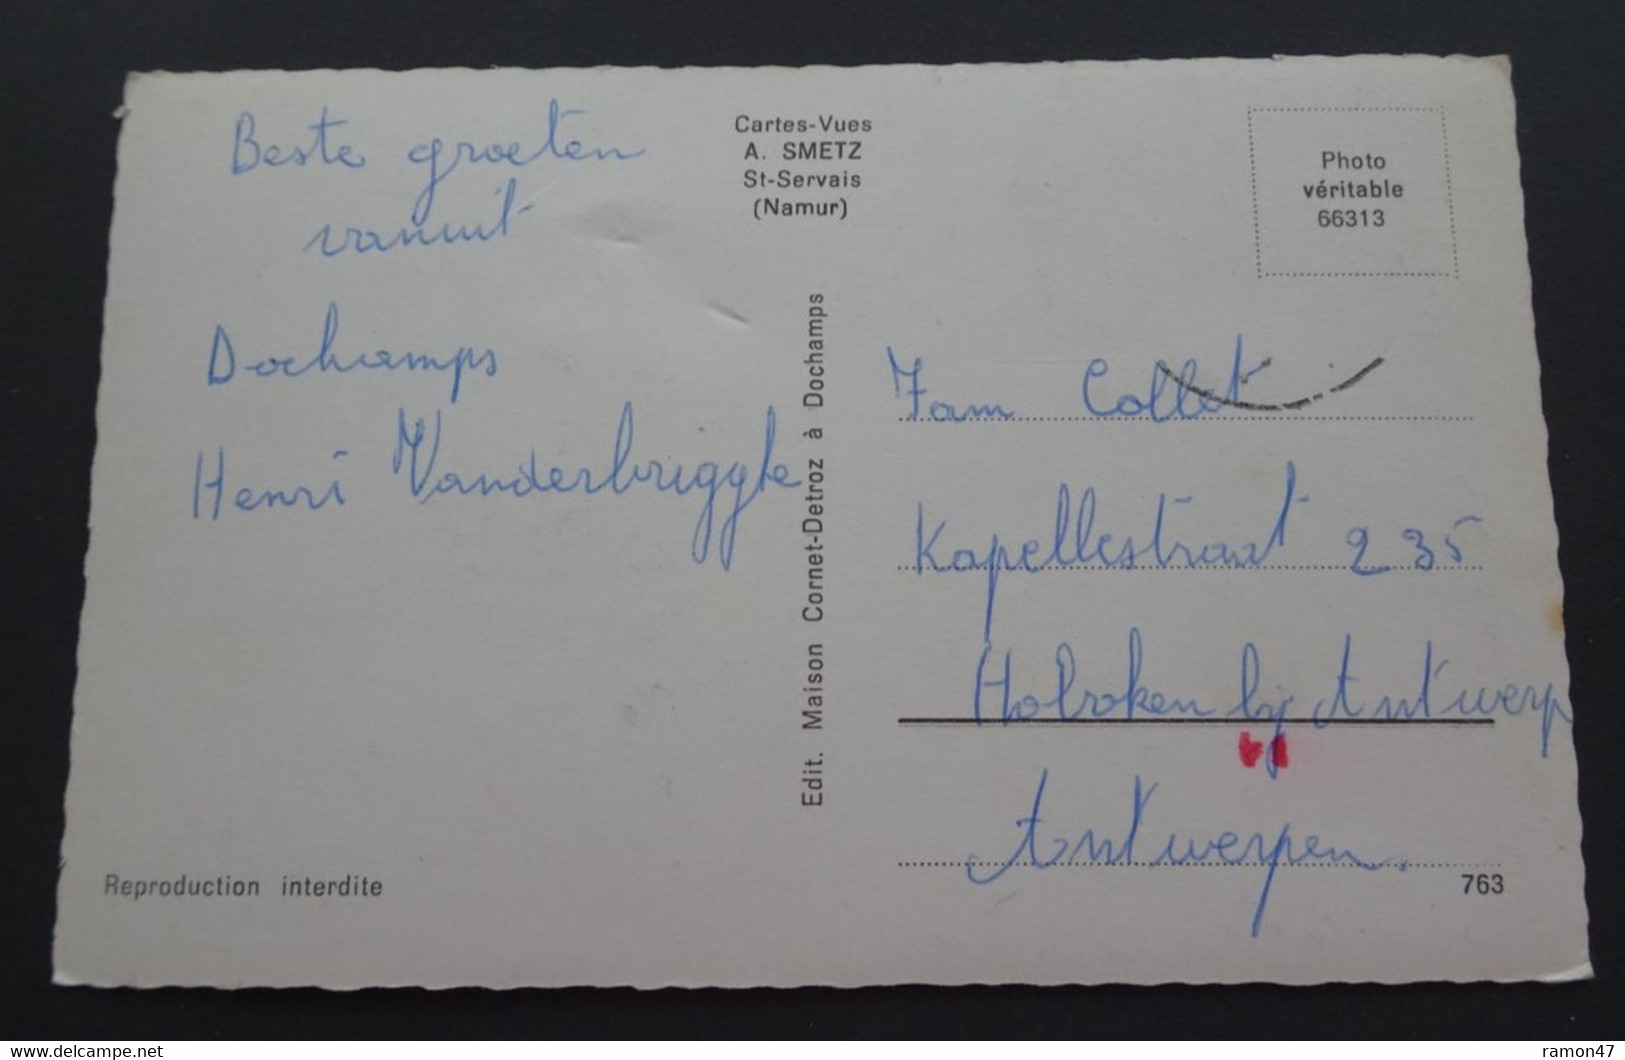 Beste groeten
vanuit
Dochamps
Henri Vanderbrigghe
Cartes-Vues
A. SMETZ
St-Servais
(Namur)
Edit. Maison Cornet-Detroz à Dochamps
Photo
véritable
66313
Fam Collet
Kapellestraat 235
Hoboken bij Antwerp
Antwerpen.
Reproduction interdite
763
delcampe.net
ramon47